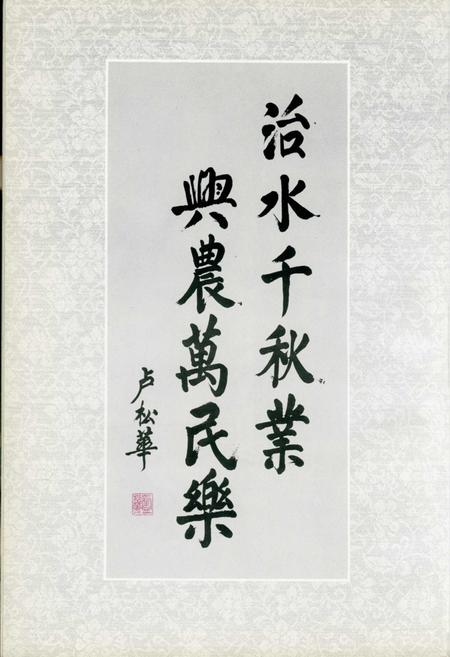 治水千秋業
興農萬民樂
卢松華